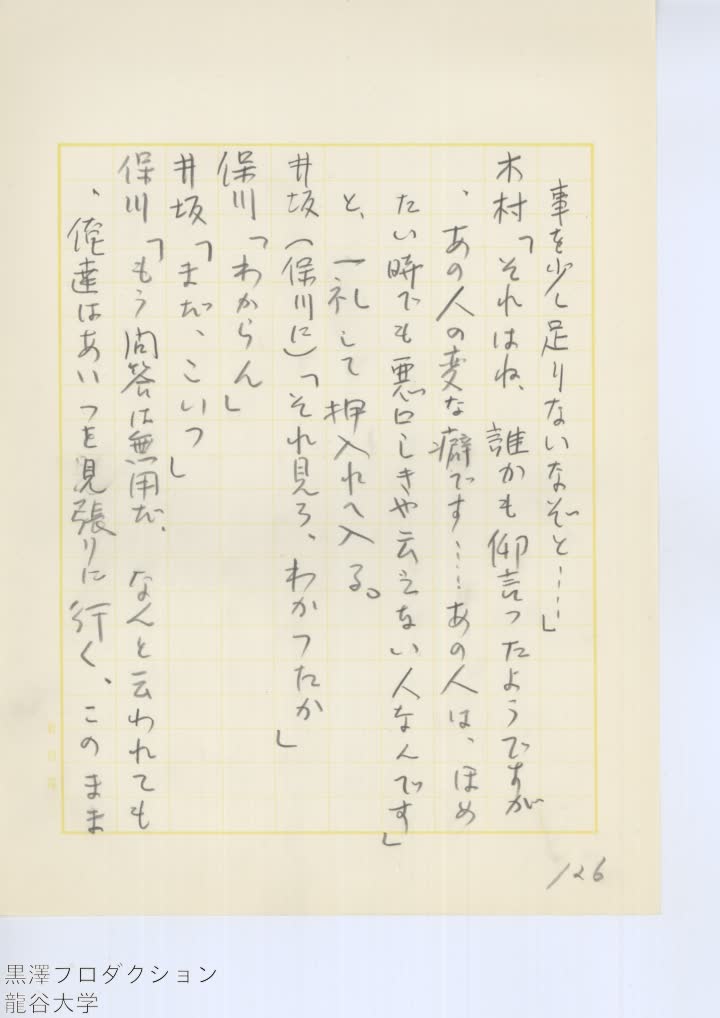 事を少し足りないなぞと……」
木村「それはね、誰かも仰言ったようですが
、あの人の変な癖です……あの人は、ほめ
たい時でも悪口しきや云えない人なんです」
と、一礼して押入れへ入る。
井坂（保川に）「それ見ろ、わかつたか」
保川「わからん」
井坂「まだ、こいつ」
保川「もう問答は無用だ、なんと云われても
、俺達はあいつを見張りに行く、このまま
126
黒澤プロダクション
龍谷大学